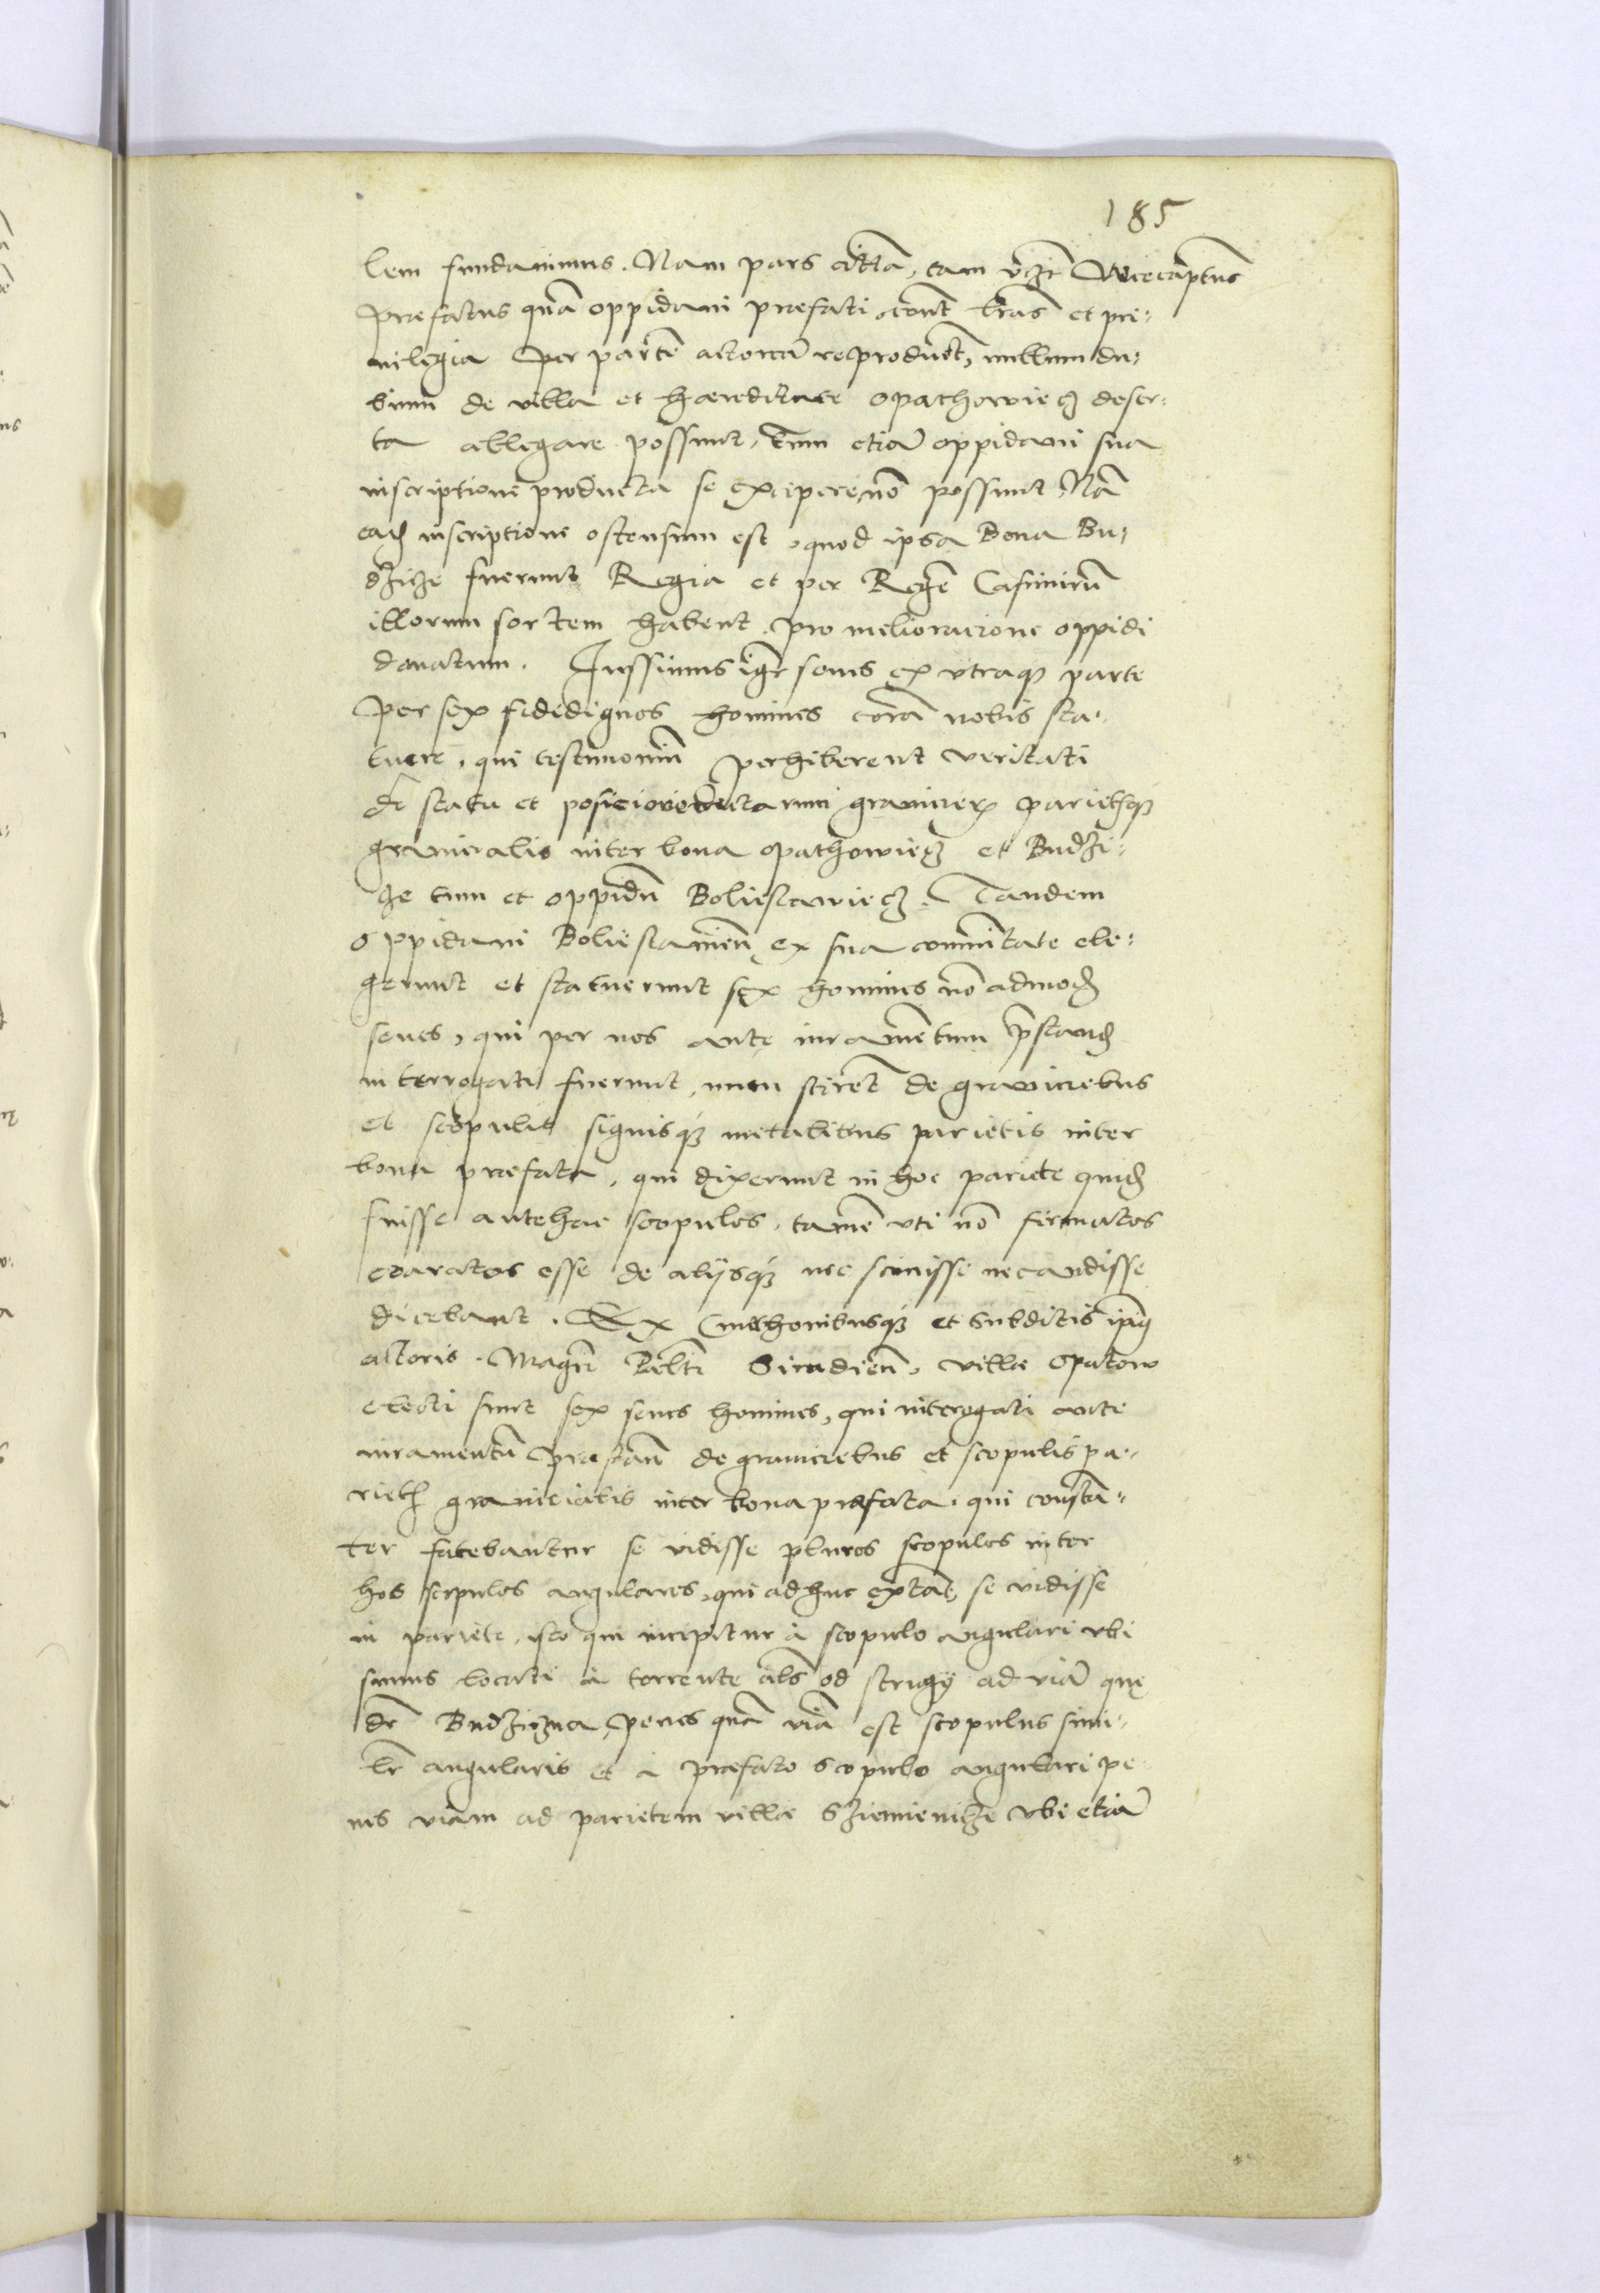 185
lem fundavimus. Nam pars citta, tam Vicecaptus
prefatus qua oppidani prefati, cont lras et pri-
vilegia per parte actorea reproduct, nullum du-
bium de villa et hæreditate opathowiecz deser-
ta allegare possunt, tum etia oppidani sua
inscriptione producta se excipere no possunt, Na
ead inscriptione ostensum est, quod ipsa Bona Bu-
dzicze fuerunt Regia et per Rege Casimirum
illorum sortem habent pro melioracione oppidi
donatum. Jussimus igr senes ex utraque parte
per sex fidedignos homines cora nobis sta-
tuere, qui testimonium perhiberent veritati
de statu et posicione dictarum granicierum parietisque
granicialis inter bona opathowiecz et Budzi-
cze tum et oppidu Boliesławiecz. Tandem
oppidani Boliesłavien ex sua comunitate ele-
gerunt et statuerunt sex homines no admod
senes, qui per nos ante iuramentum prestand
interrogati fuerunt, num scirent de graniciebus
et scopulis signisque metalibus parietis inter
bona prefata, qui dixerunt in hoc pariete quid
fuisse antehac scopulos, tame uti no firmatos
exaratos esse de alijsque nec scivisse nec audisse
dicebant. Ex Cmethonibusque et subditis ipius
actoris Magci Palti Siradien, villæ Opatow
electi sunt sex senes homines, qui interogati ante
iuramentu prestan de graniciebus et scopulis pa-
rietis granicialis inter bona prefata. qui consta-
ter fatebantur se vidisse plures scopulos inter
hos scopulos angulares, qui adhuc extat, se vidisse
in pariete, isto qui incipitur à scopulo angulari ubi
sumus locati à torrente als od strugy ad via que
dr Budziczna, penes qua via est scopulus simi-
lr angularis et à prefato scopulo angulari pe-
nes viam ad parietem villæ Sziemienicze ubi etia